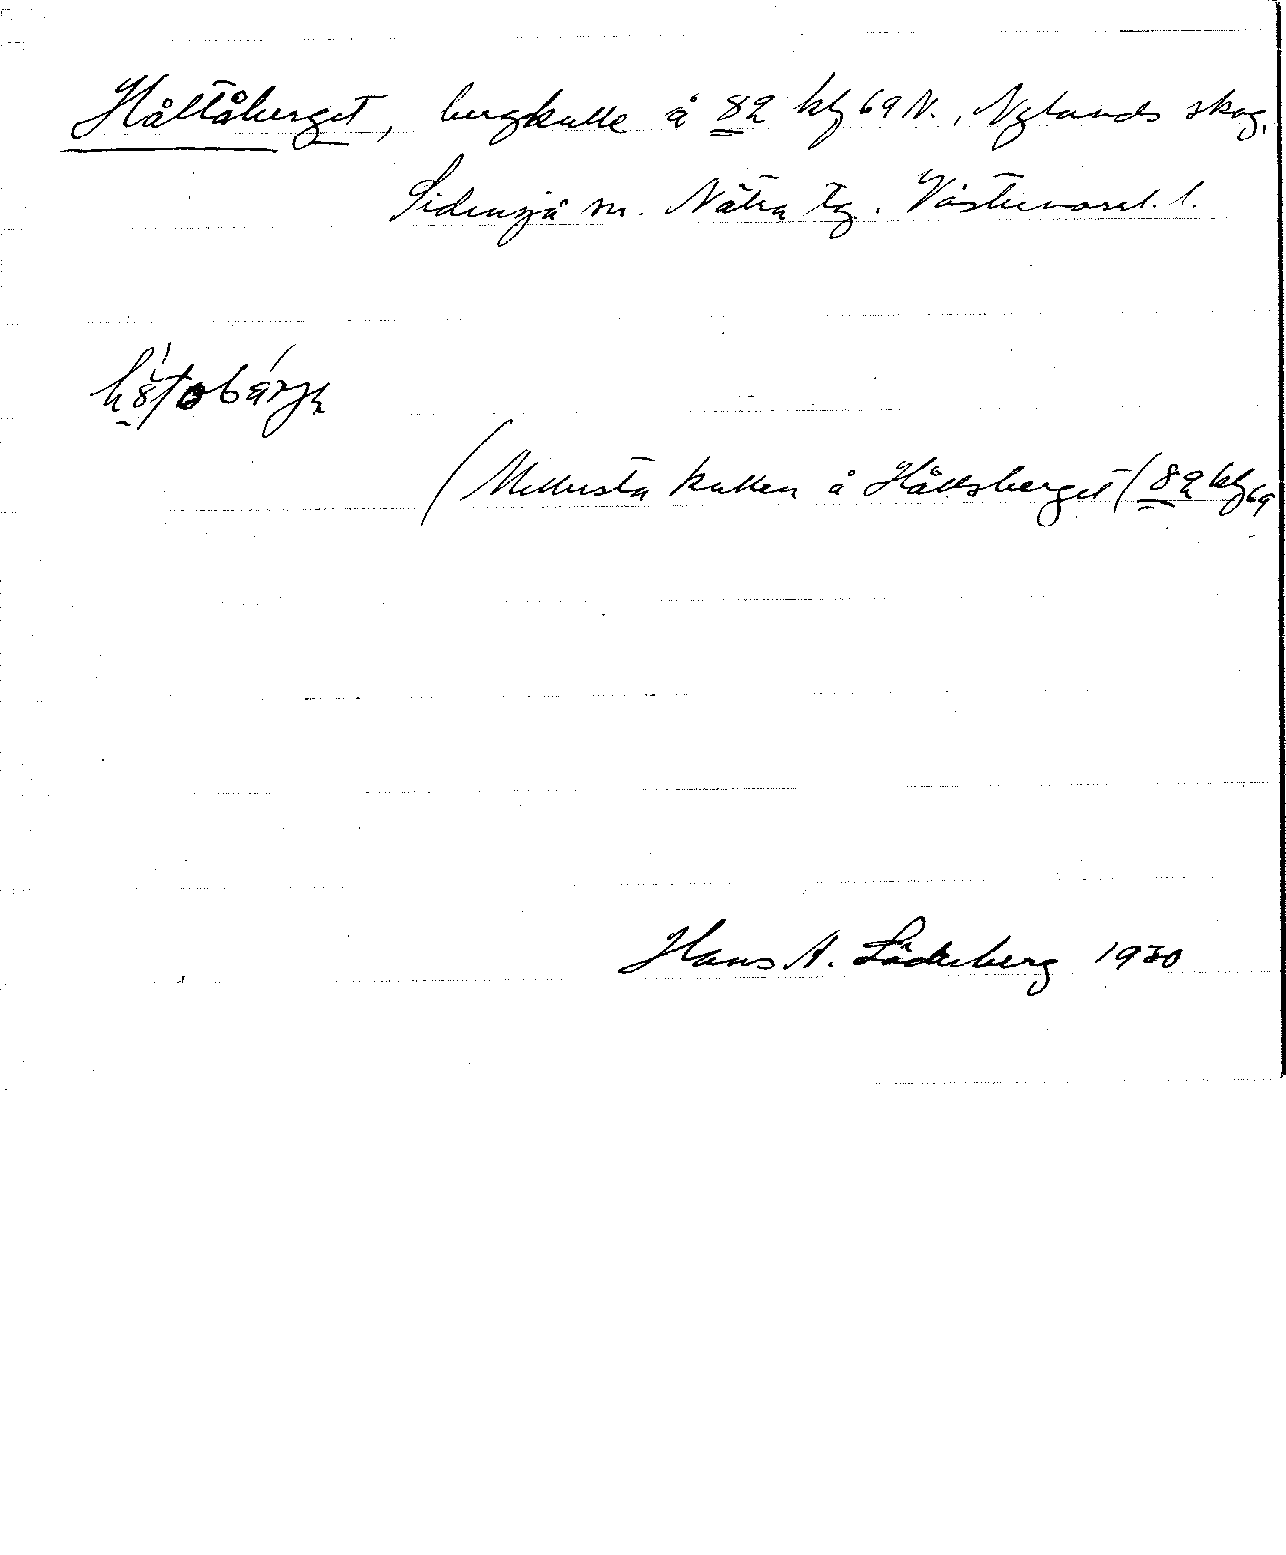 Håltåberget, bergkulle å 82 kbf 69 N., Nylands skog,
Sidensjö sn. Nätra tg. Västernorrl. l.
(Mellersta kullen å Hållsberget (82 kbf 69
Hans A. Söderberg 1930